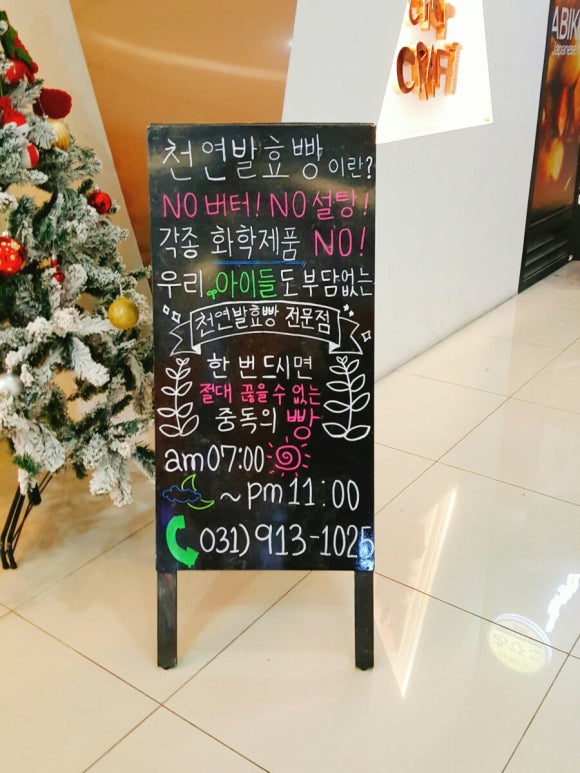 천연발효빵이란?
NO버터! NO설탕!
각종 화학제품 NO!
우리 아이들도 부담없는
천연발효빵 전문점
한 번 드시면
절대 끊을 수 없는
중독의 빵
am 07:00
~ pm 11:00
031) 913-1025
CRAFT
ABIK
Japanese